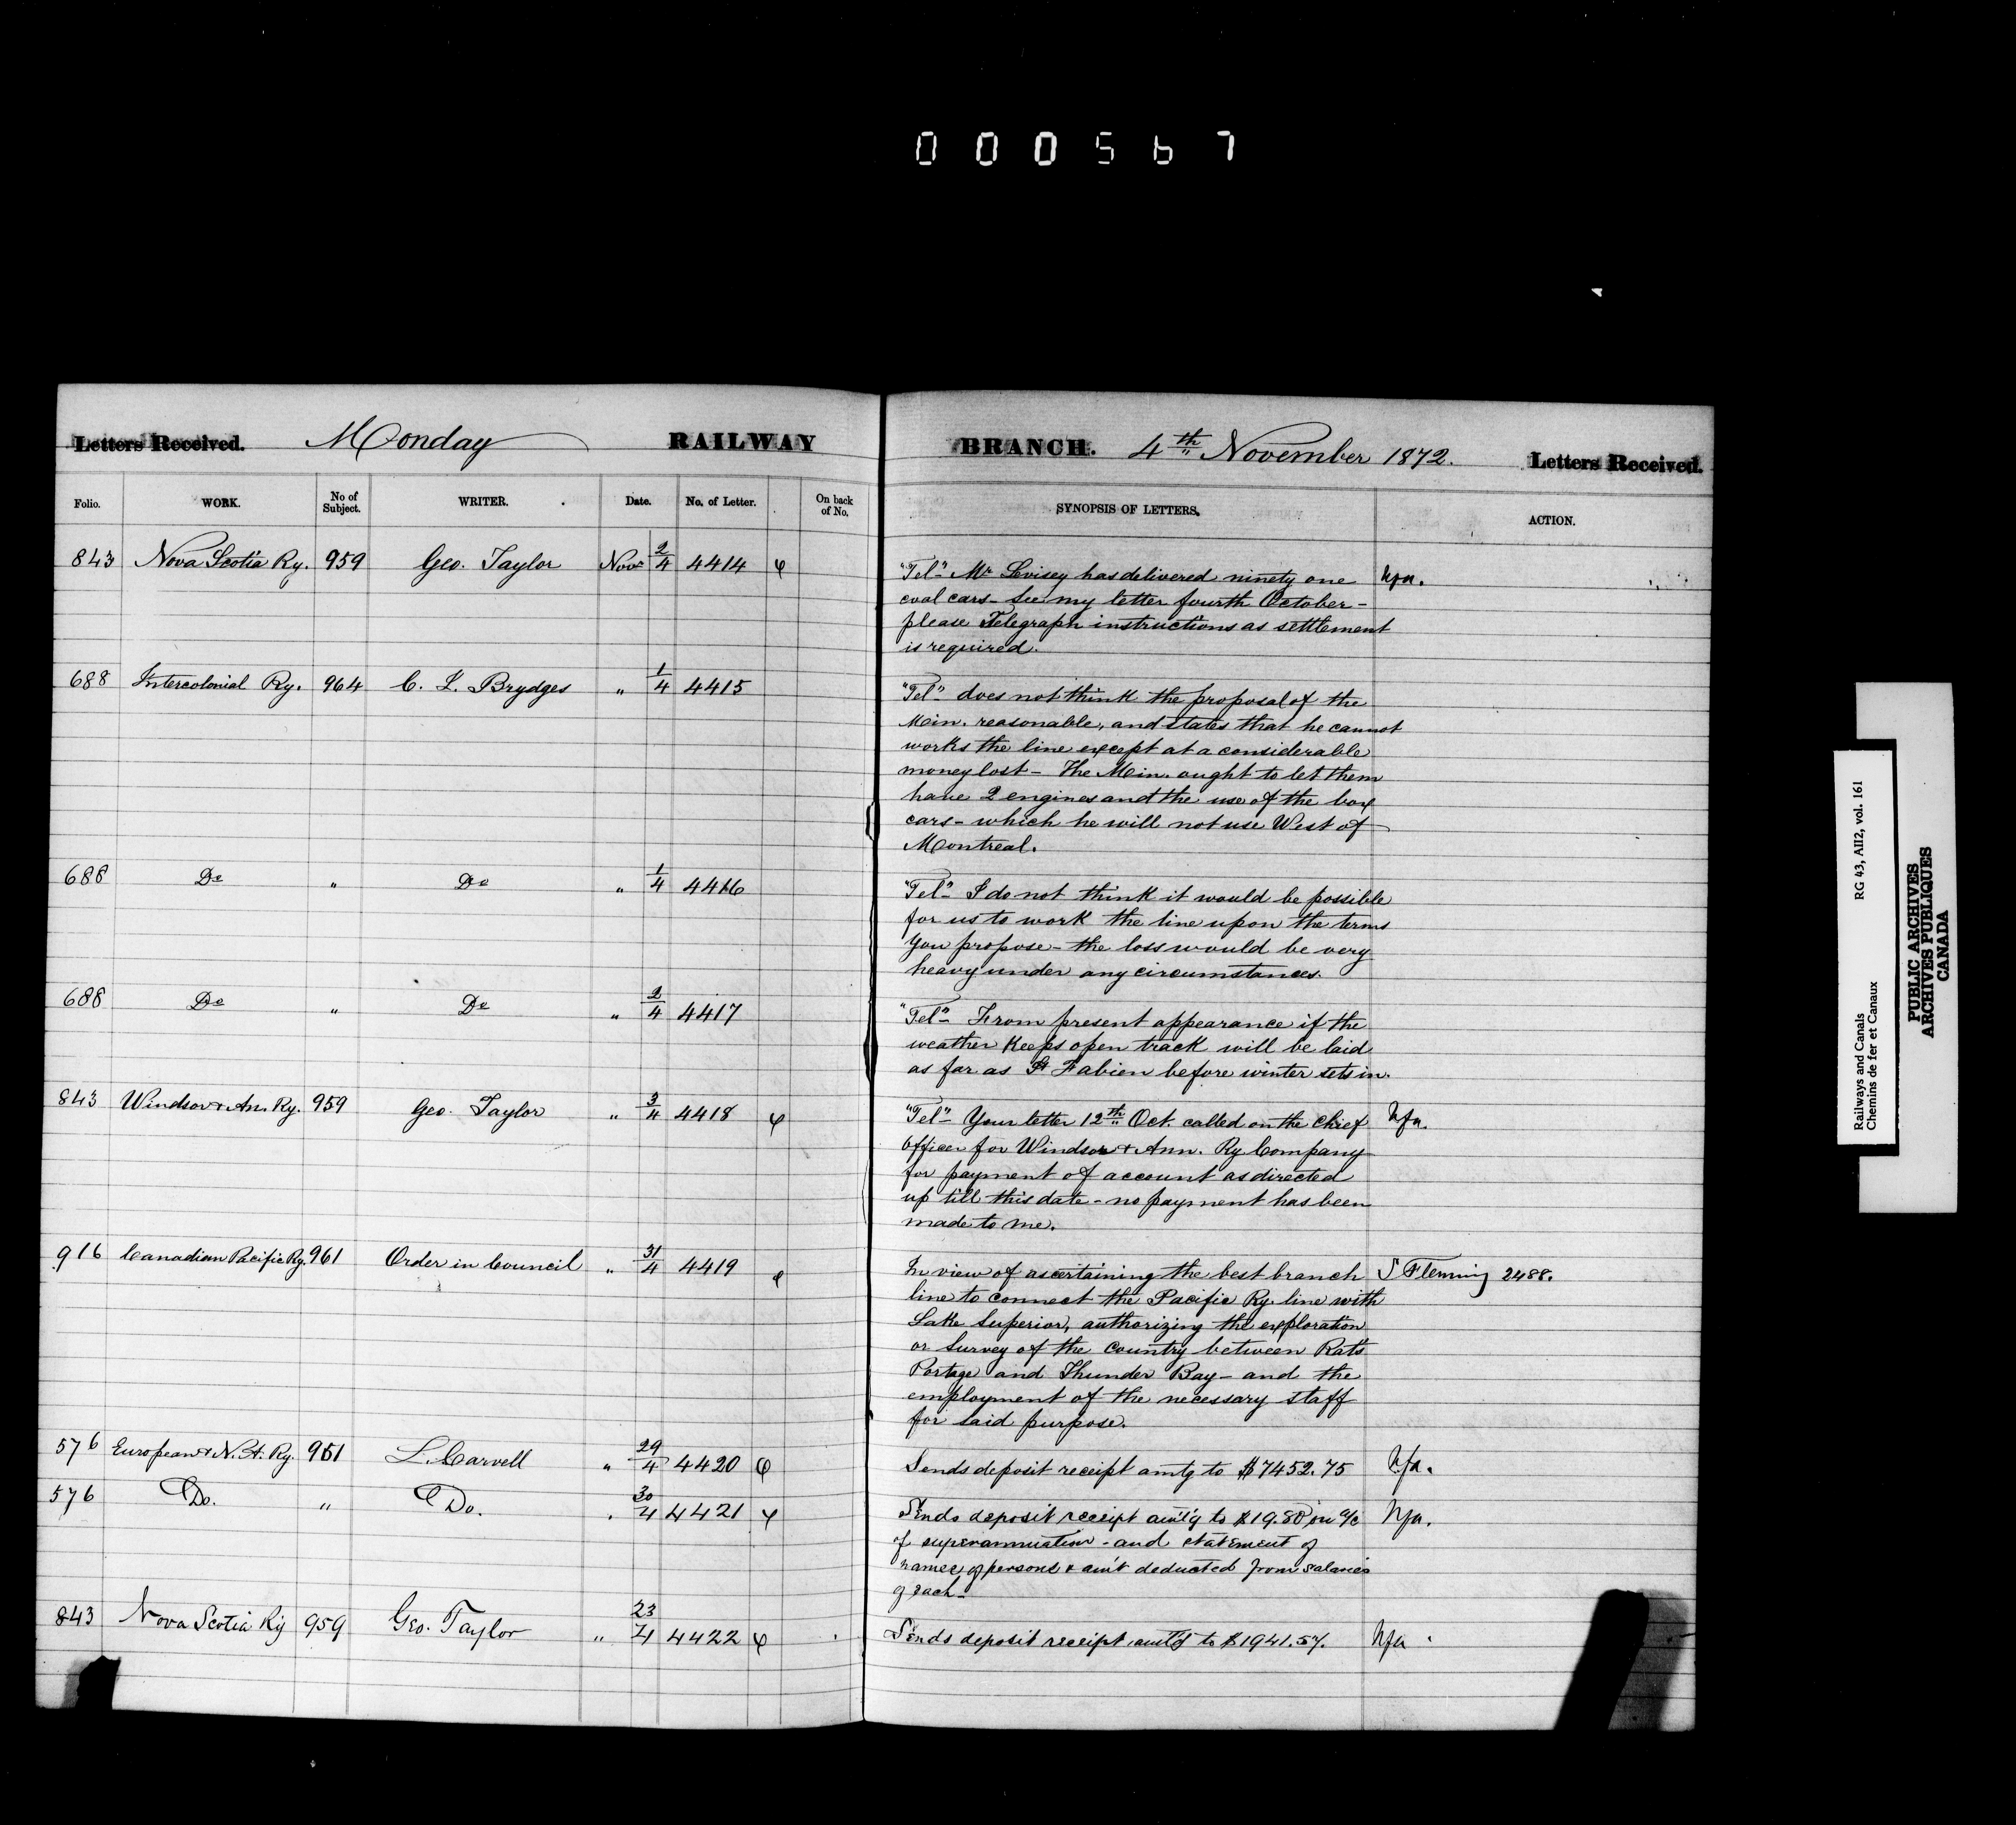 000567
Letters Received. Monday RAILWAY BRANCH. 4th November 1872. Letters Received.
Folio. WORK. No of Subject. WRITER. Date. No. of Letter. On back of No. SYNOPSIS OF LETTERS. ACTION.
843 Nova Scotia Ry. 959 Geo. Taylor Novr 2/4 4414 "Tel" Mr Livisey has delivered ninety one Nfa.
coal cars - See my letter fourth October -
please Telegraph instructions as settlement
is required.
688 Intercolonial Ry. 964 C. J. Brydges " 1/4 4415 "Tel" does not think the proposal of the
Min. reasonable, and states that he cannot
works the line except at a considerable
money lost - The Min. ought to let them
have 2 engines and the use of the box
cars - which he will not use West of
Montreal.
688 Do " Do " 1/4 4416 "Tel" I do not think it would be possible
for us to work the line upon the terms
you propose - the loss would be very
heavy under any circumstances.
688 Do " Do " 2/4 4417 "Tel" From present appearance if the
weather keeps open track will be laid
as far as St Fabien before winter sets in.
843 Windsor & An. Ry. 959 Geo. Taylor " 3/4 4418 "Tel" Your letter 12th Oct. called on the Chief Nfa.
Officer for Windsor & Ann. Ry Company
for payment of account as directed
up till this date - no payment has been
made to me.
916 Canadian Pacific Ry. 961 Order in Council " 31/4 4419 In view of ascertaining the best branch S Fleming 2488.
line to connect the Pacific Ry. line with
Lake Superior, authorizing the exploration
or Survey of the Country between Rat's
Portage and Thunder Bay - and the
employment of the necessary staff
for said purpose.
576 European & N. A. Ry. 951 L. Carvell " 29/4 4420 Sends deposit receipt amtg to $7452.75 Nfa.
576 Do. " Do. " 30/4 4421 Sends deposit receipt amt'g to $19.80 on a/c Nfa.
of superannuation - and statement of
names of persons & am't deducted from salaries
of each -
843 Nova Scotia Ry 959 Geo. Taylor " 23/4 4422 Sends deposit receipt amt'g to $1941.57. Nfa.
Railways and Canals RG 43, AII2, vol. 161
Chemins de fer et Canaux
PUBLIC ARCHIVES
ARCHIVES PUBLIQUES
CANADA